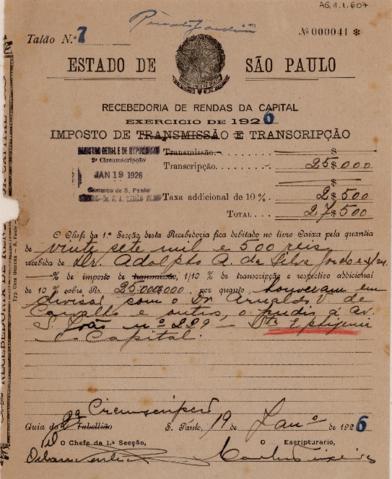 AG.1.1.607
Talão N.º 7
Nº 000041 *
ESTADO DE SÃO PAULO
RECEBEDORIA DE RENDAS DA CAPITAL
EXERCICIO DE 1926
IMPOSTO DE TRANSMISSÃO E TRANSCRIPÇÃO
REGISTRO GERAL E DE HYPOTHECAS
2ª Circumscripção
JAN 19 1926
Comarca de S. Paulo
Transmissão $
Transcripção 25$000
$
Taxa addicional de 10% 2$500
TOTAL 27$500
O Chefe da 1ª Secção desta Recebedoria fica debitado no livro Caixa pela quantia
de vinte sete mil e 500 reis
recebida de Dr. Adolpho A. da Silva Gordo
% de imposto de transmissão, 1/10 % de transcripção e respectivo addicional
de 10 % sobre Rs. 25:000$000 por quanto houveram em
divisão com o Dr. Arnaldo V. de
Carvalho e outros, o predio á Av.
S. João nº 229 - Sta Ephigenia
Capital.
2ª Circumscripção
Guia do Tabellião S. Paulo, 19 de Janº de 1926
O Chefe da 1ª Secção, O Escripturario,